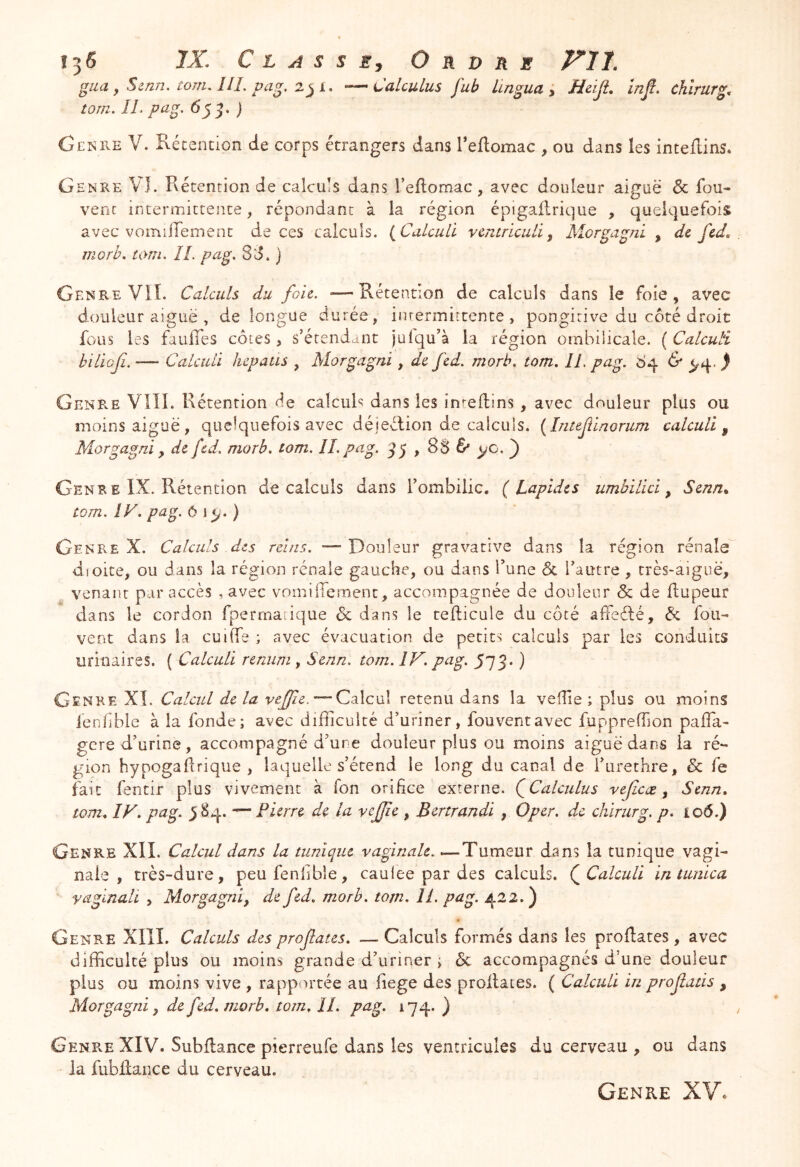 136 IX. CLASSE, ORDRE VII.
gua, Senn. tom. III. pag. 251. — Calculus ſub lingua, Heiſt. inſt. chirurg.
tom. II. pag. 653. )
GENRE V. Rétention de corps étrangers dans l'eſtomac, ou dans les inteſtins.
GENRE VI. Rétention de calculs dans l'eſtomac, avec douleur aiguë & ſou-
vent intermittente, répondant à la région épigaſtrique, quelquefois
avec vomiſſement de ces calculs. (Calculi ventriculi, Morgagni, de ſed.
morb. tom. II. pag. 88. )
GENRE VII. Calculs du foie. — Rétention de calculs dans le foie, avec
douleur aiguë, de longue durée, intermittente, pongitive du côté droit
ſous les fauſſes côtes, s'étendant juſqu'à la région ombilicale. (Calculi
bilioſi. — Calculi hepatis, Morgagni, de ſed. morb. tom. II. pag. 84 & 94. )
GENRE VIII. Rétention de calculs dans les inteſtins, avec douleur plus ou
moins aiguë, quelquefois avec déjection de calculs. (Inteſtinorum calculi,
Morgagni, de ſed. morb. tom. II. pag. 35, 88 & 90. )
GENRE IX. Rétention de calculs dans l'ombilic. ( Lapides umbilici, Senn.
tom. IV. pag. 619. )
GENRE X. Calculs des reins. — Douleur gravative dans la région rénale
dioite, ou dans la région rénale gauche, ou dans l'une & l'autre, très-aiguë,
venant par accès, avec vomiſſement, accompagnée de douleur & de ſtupeur
dans le cordon ſpermatique & dans le teſticule du côté affecté, & ſou-
vent dans la cuiſſe ; avec évacuation de petits calculs par les conduits
urinaires. ( Calculi renum, Senn. tom. IV. pag. 573. )
GENRE XI. Calcul de la veſſie. — Calcul retenu dans la veſſie ; plus ou moins
ſenſible à la ſonde ; avec difficulté d'uriner, ſouvent avec ſuppreſſion paſſa-
gere d'urine, accompagné d'une douleur plus ou moins aiguë dans la ré-
gion hypogaſtrique, laquelle s'étend le long du canal de l'urethre, & ſe
fait ſentir plus vivement à ſon orifice externe. (Calculus veſicæ, Senn.
tom. IV. pag. 584. — Pierre de la veſſie, Bertrandi, Oper. de chirurg. p. 106.)
GENRE XII. Calcul dans la tunique vaginale. — Tumeur dans la tunique vagi-
nale, très-dure, peu ſenſible, cauſée par des calculs. ( Calculi in tunica
vaginali, Morgagni, de ſed. morb. tom. II. pag. 422. )
GENRE XIII. Calculs des proſtates. — Calculs formés dans les proſtates, avec
difficulté plus ou moins grande d'uriner ; & accompagnés d'une douleur
plus ou moins vive, rapportée au ſiege des proſtates. ( Calculi in proſtatis,
Morgagni, de ſed. morb. tom. II. pag. 174. )
GENRE XIV. Subſtance pierreuſe dans les ventricules du cerveau, ou dans
la ſubſtance du cerveau.
GENRE XV.